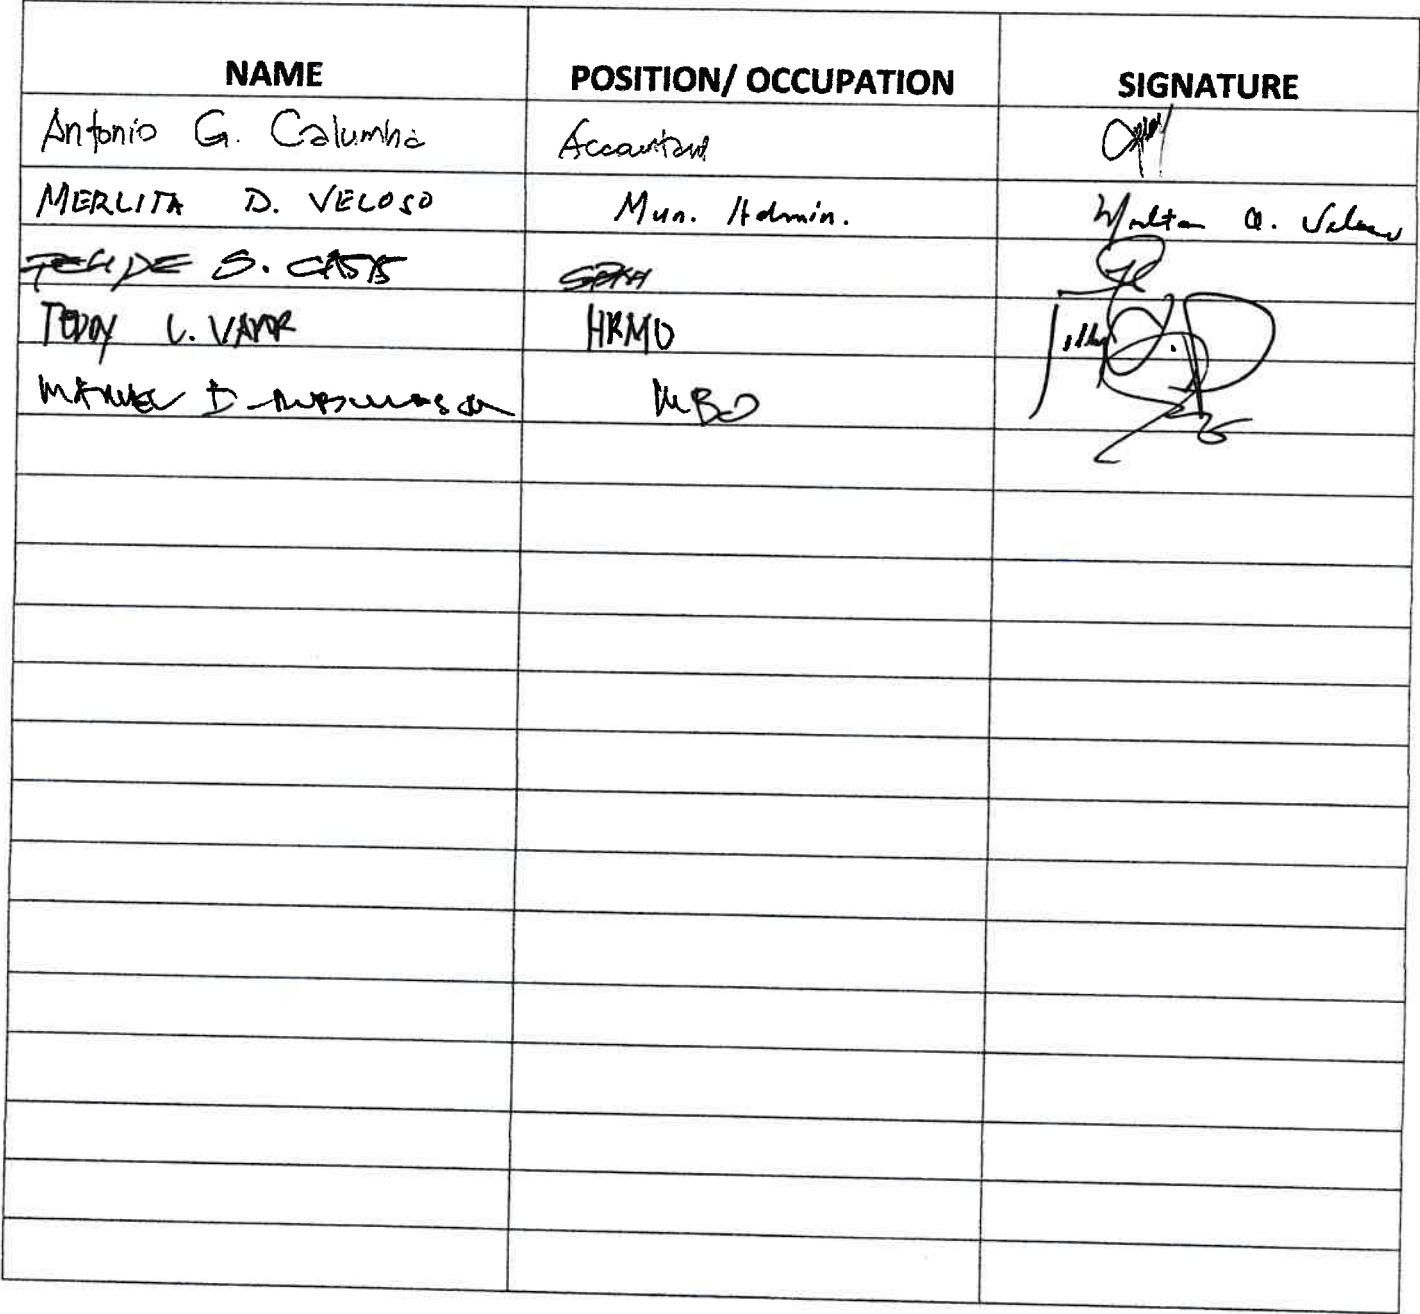 NAME POSITION/ OCCUPATION SIGNATURE
Antonio G. Calumba Accountant
MERLITA D. VELOSO Mun. Admin.
FELIPE S. CASTS
TEDDY L. HRMO
MANUEL D. MBO